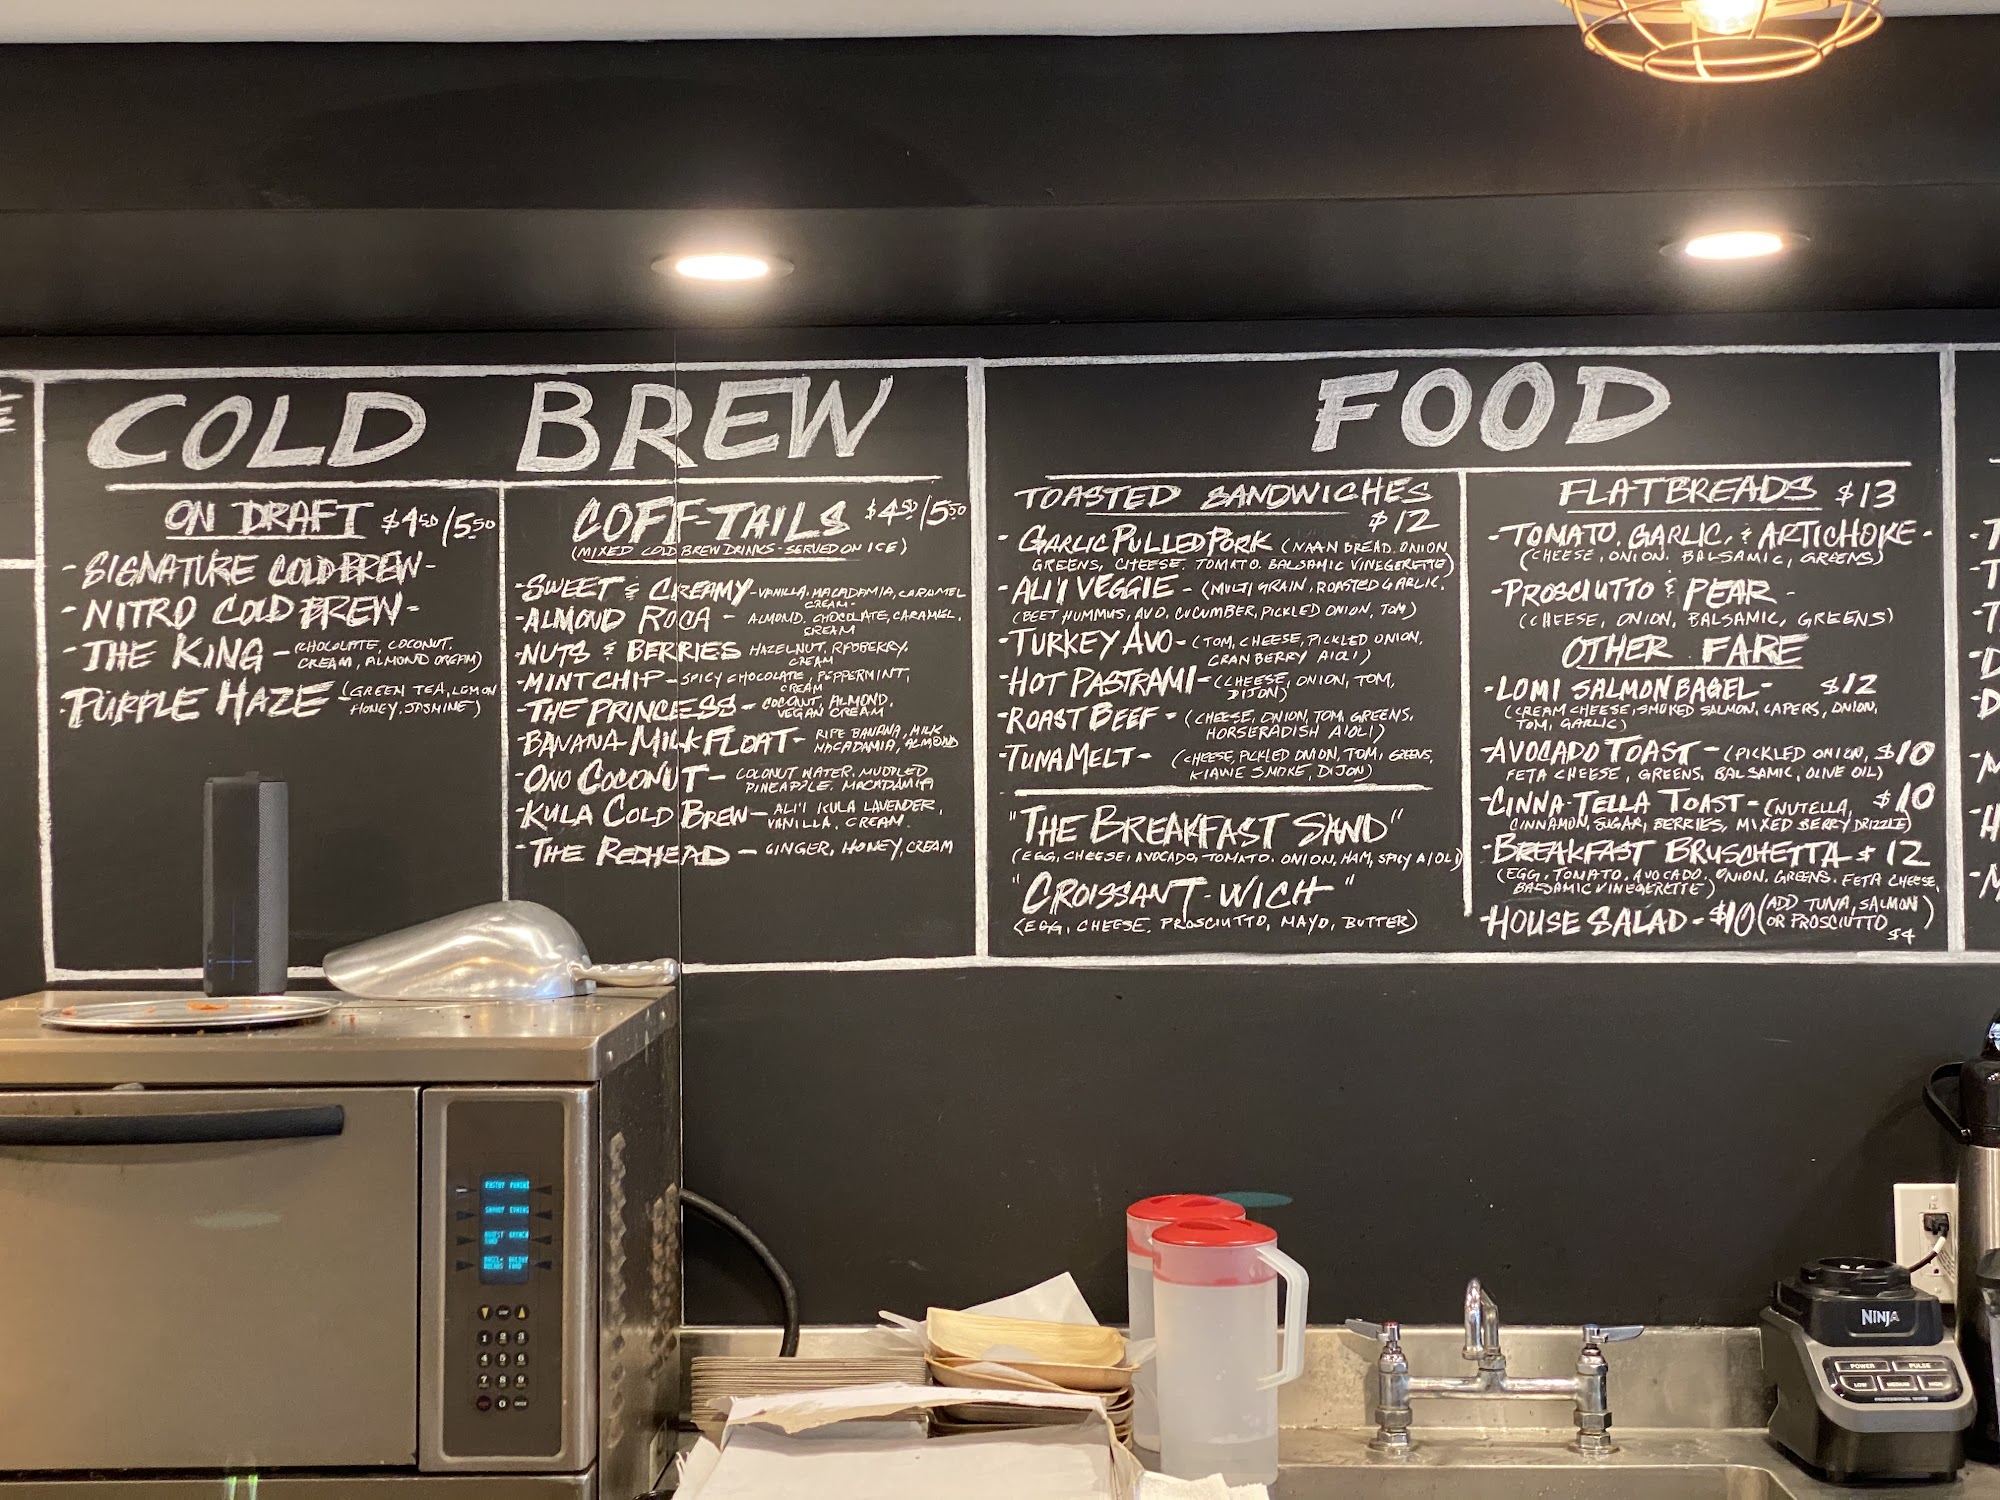 COLD BREW
ON DRAFT $4.50/5.50
- SIGNATURE COLD BREW -
- NITRO COLD BREW -
- THE KING - CHOCOLATE, COCONUT,
CREAM, ALMOND CREAM)
- PURPLE HAZE - (GREEN TEA, LEMON
HONEY, JASMINE)
COFF-TAILS $4.50/5.50
(MIXED COLD BREW DRINKS - SERVED ON ICE)
- SWEET & CREAMY - VANILLA, MACADAMIA, CARAMEL
CREAM -
- ALMOND ROCA - ALMOND, CHOCOLATE, CARAMEL,
CREAM
- NUTS & BERRIES HAZELNUT,
CREAM
- MINT CHIP - SPICY CHOCOLATE, PEPPERMINT,
CREAM
- THE PRINCESS - COCONUT, ALMOND,
VEGAN CREAM
- BANANA MILK FLOAT - RIPE BANANA, MILK
MACADAMIA, ALMOND
- ONO COCONUT - COCONUT WATER, MUDDLED
PINEAPPLE, MACADAMIA
- KULA COLD BREW - ALI'I KULA LAVENDER,
VANILLA, CREAM.
- THE REDHEAD - GINGER, HONEY, CREAM
FOOD
TOASTED SANDWICHES
$12
- GARLIC PULLED PORK (NAAN BREAD, ONION
GREENS, CHEESE, TOMATO, BALSAMIC VINEGERETTE)
- ALI'I VEGGIE - (MULTI GRAIN, ROASTED GARLIC,
(BEET HUMMUS, AVO, CUCUMBER, PICKLED ONION, TOM)
- TURKEY AVO - (TOM, CHEESE, PICKLED ONION,
CRANBERRY AIOLI)
- HOT PASTRAMI - (CHEESE, ONION, TOM,
DIJON)
- ROAST BEEF - (CHEESE, ONION, TOM, GREENS,
HORSERADISH AIOLI)
- TUNA MELT - (CHEESE, PICKLED ONION, TOM, GREENS,
KIAWE SMOKE, DIJON)
"THE BREAKFAST SAND"
(EGG, CHEESE, AVOCADO, TOMATO, ONION, HAM, SPICY AIOLI)
"CROISSANT-WICH"
(EGG, CHEESE, PROSCIUTTO, MAYO, BUTTER)
FLATBREADS $13
- TOMATO, GARLIC, & ARTICHOKE -
(CHEESE, ONION, BALSAMIC, GREENS)
- PROSCIUTTO & PEAR -
(CHEESE, ONION, BALSAMIC, GREENS)
OTHER FARE
- LOMI SALMON BAGEL - $12
(CREAM CHEESE, SMOKED SALMON, CAPERS, ONION,
TOM, GARLIC)
- AVOCADO TOAST - (PICKLED ONION, $10
FETA CHEESE, GREENS, BALSAMIC, OLIVE OIL)
- CINNA-TELLA TOAST - (NUTELLA, $10
CINNAMON, SUGAR, BERRIES, MIXED BERRY DRIZZLE)
- BREAKFAST BRUSCHETTA $12
(EGG, TOMATO, AVOCADO, ONION, GREENS, FETA CHEESE,
BALSAMIC VINEGERETTE)
- HOUSE SALAD - $10 (ADD TUNA, SALMON)
OR PROSCIUTTO $4
NINJA
POWER PULSE
LOW MEDIUM HIGH